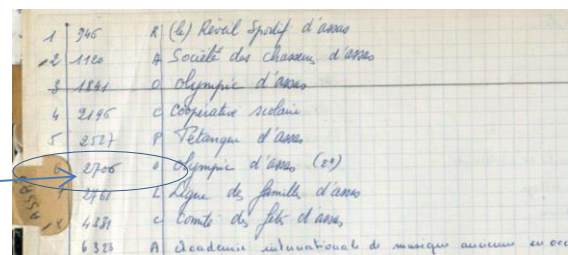 1 946 R (le) Réveil Sportif d'assas
2 1120 A Société des chasseurs d'assas
3 1841 O Olympic d'assas
4 2196 C Coopérative scolaire
5 2527 P Pétanque d'assas
6 2706 O Olympic d'assas (2e)
7 2761 L Ligue des familles d'assas
4881 C Comité des fêtes d'assas
6323 A Académie internationale de musique ancienne en occ
ASSAS